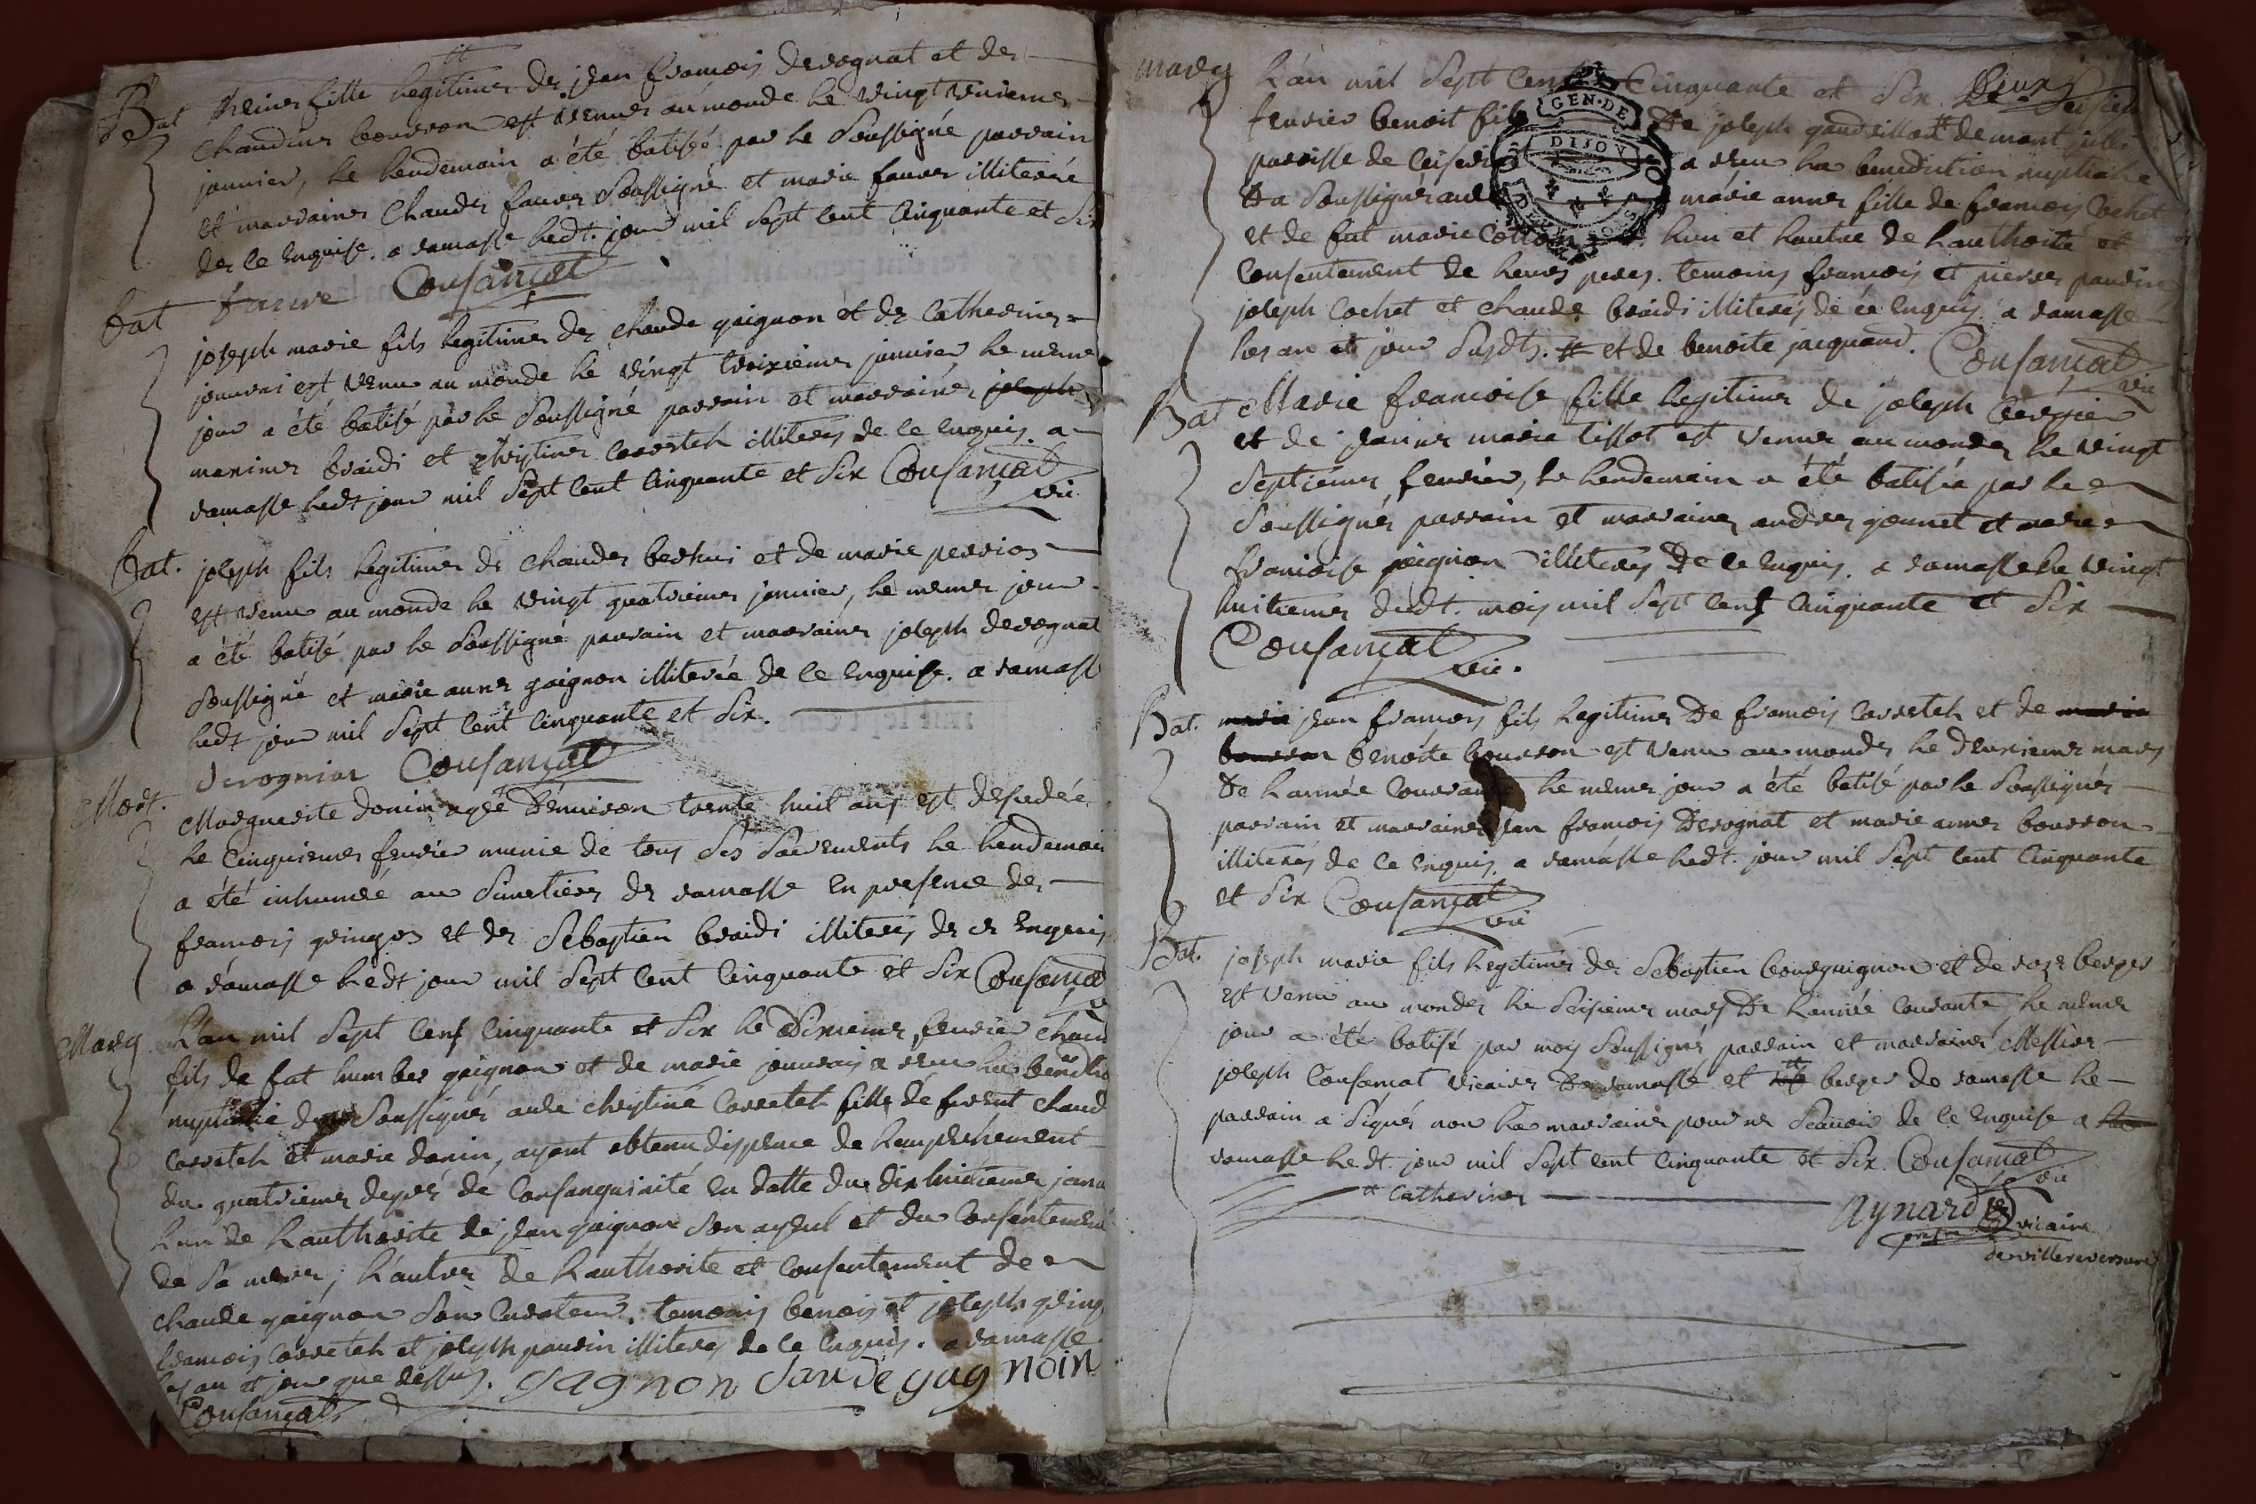 Bat reine fille legitime de jean francois derognat et de
claudine bourron est venue au monde le vingt unieme
janvier, le lendemain a été batisée par le soussigné parrain
et marraine claude faure soussigné et marie faure illiterée
de ce enquise. a ramasse ledt. jour mil sept cent cinquante et six
faure Cousançat
bat joseph marie fils legitime de claude gaignon et de catherine
jouvrai est venu au monde le vingt troixieme janvier, le meme
jour a été batisé par le soussigné parrain et marraine joseph
marie braidi et christine carretel illiteres de ce enquis. a
ramasse ledt jour mil sept cent cinquante et six Cousançat
vic.
Bat. joseph fils legitime de claude berlui et de marie perrion
est venu au monde le vingt quatrieme janvier, le meme jour
a été batisé par le soussigné parrain et marraine joseph derognat
soussigné et marie anne gaignon illiterée de ce enquise. a ramasse
ledt jour mil sept cent cinquante et six.
derognian Cousançat
Mort. Marguerite donin agée d'environ trente huit ans est decedée
le cinquieme fevrier munie de tous ses sacrements le lendemain
a été inhumée au simetiere de ramasse en presence de
francois gringoz et de sebastien braidi illiteres de ce enquis
a ramasse ledt jour mil sept cent cinquante et six Cousançat
Marg L'an mil sept cent cinquante et six le dixieme fevrier claude
fils de fut humber gaignon et de marie jouvrai a reçu la benedictio
nuptialle du soussigné avec christine carretel fille de furent claud
carretel et marie donin, ayant obtenu dispence de l'empechement
du quatrieme degré de consanguinité en datte du dix huitieme janv
l'un de l'authorité de jean gaignon son ayeul et du consentement
de sa mere, l'autre de l'authorité et consentement de
claude gaignon son curateur. temoins benois et joseph gring
francois carretel et joseph paurin illiteres de ce enquis. a ramasse
les an et jour que dessus. gagnon claude gagnoin
Cousançat
marg L'an mil sept cent cinquante et six le
fevrier benoit fils de joseph gaudillat # de mont juli
paroisse de ceiseria a reçu la benediction nuptialle
du soussigné avec marie anne fille de francois cochet
et de fut marie cotton l'un et l'autre de l'authorité et
consentement de leurs peres. temoins francois et pierre paurin
joseph cochet et claude braidi illiterés de ce enquis. a ramasse
les an et jour susdts. # et de benoite jacquand. Cousançat
vic
Bat Marie francoise fille legitime de joseph bergier
et de jeanne marie tissot est venue au monde le vingt
septieme fevrier, le lendemain a été batisée par le
soussigné, parrain et marraine andre jeunet et marie
francoise gaignon illiteres de ce enquis. a ramasse le vingt
huitieme dudt. mois mil sept cent cinquante et six
Cousançat
vic.
Bat. marie jean francois fils legitime de francois carretel et de marie
bourron benoite bourron est venu au monde le deuxieme mars
de l'année courante le meme jour a été batisé par le soussigné
parrain et marraine jean francois derognat et marie anne bourron
illiterés de ce enquis. a ramasse ledt. jour mil sept cent cinquante
et six Cousançat
vic
Bat. joseph marie fils legitime de sebastien bourguignon et de roze berger
est venu au monde le seisieme mars de l'année courante, le meme
jour a été batisé par moy soussigné parrain et marraine Messire
joseph Cousançat vicaire de ramasse et # berger de ramasse le
parrain a signé non la marraine pour ne scavoir de ce enquise a
ramasse ledt. jour mil sept cent cinquante et six. Cousançat
vic
# catherine
Aynard
pretre vicaire
de villereversure
GEN. DE
DIJON